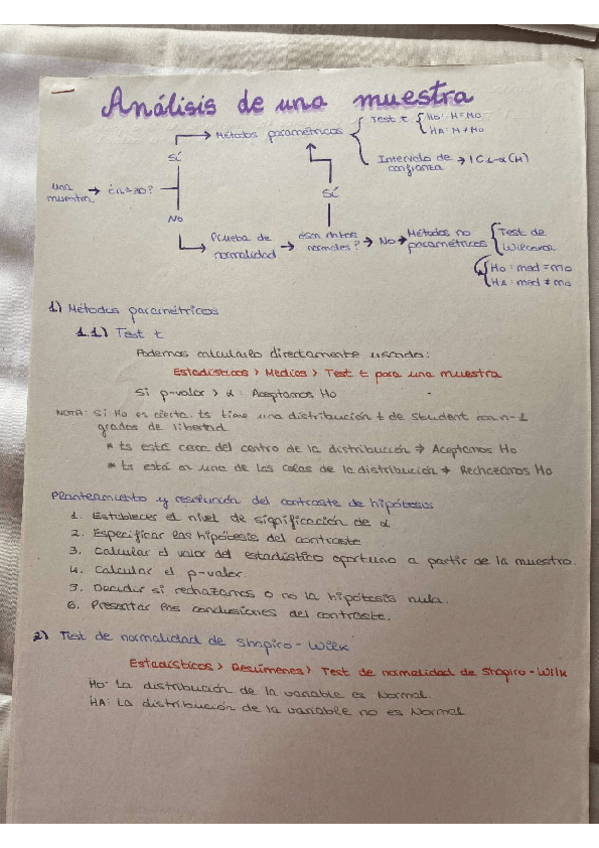 Análisis de una muestra
Métodos paramétricos
Test t
H0: M=M0
HA: M≠M0
Intervalo de confianza → IC1-α(M)
Sí
una muestra → ¿n≥30?
No
Prueba de normalidad → ¿Son datos normales? → No → Métodos no paramétricos
Sí
Test de Wilcoxon
H0: med = m0
HA: med ≠ m0
1) Métodos paramétricos
1.1) Test t
Podemos calcularlo directamente usando:
Estadísticos > Medias > Test t para una muestra
Si p-valor > α : Aceptamos H0
NOTA: Si H0 es cierta, ts tiene una distribución t de Student con n-1
grados de libertad
* ts está cerca del centro de la distribución ⇒ Aceptamos H0
* ts está en una de las colas de la distribución ⇒ Rechazamos H0
Planteamiento y resolución del contraste de hipótesis
1. Establecer el nivel de significación de α
2. Especificar las hipótesis del contraste
3. Calcular el valor del estadístico oportuno a partir de la muestra.
4. Calcular el p-valor.
5. Decidir si rechazamos o no la hipótesis nula.
6. Presentar las conclusiones del contraste.
2) Test de normalidad de Shapiro-Wilk
Estadísticos > Resúmenes > Test de normalidad de Shapiro-Wilk
H0: La distribución de la variable es Normal.
HA: La distribución de la variable no es Normal